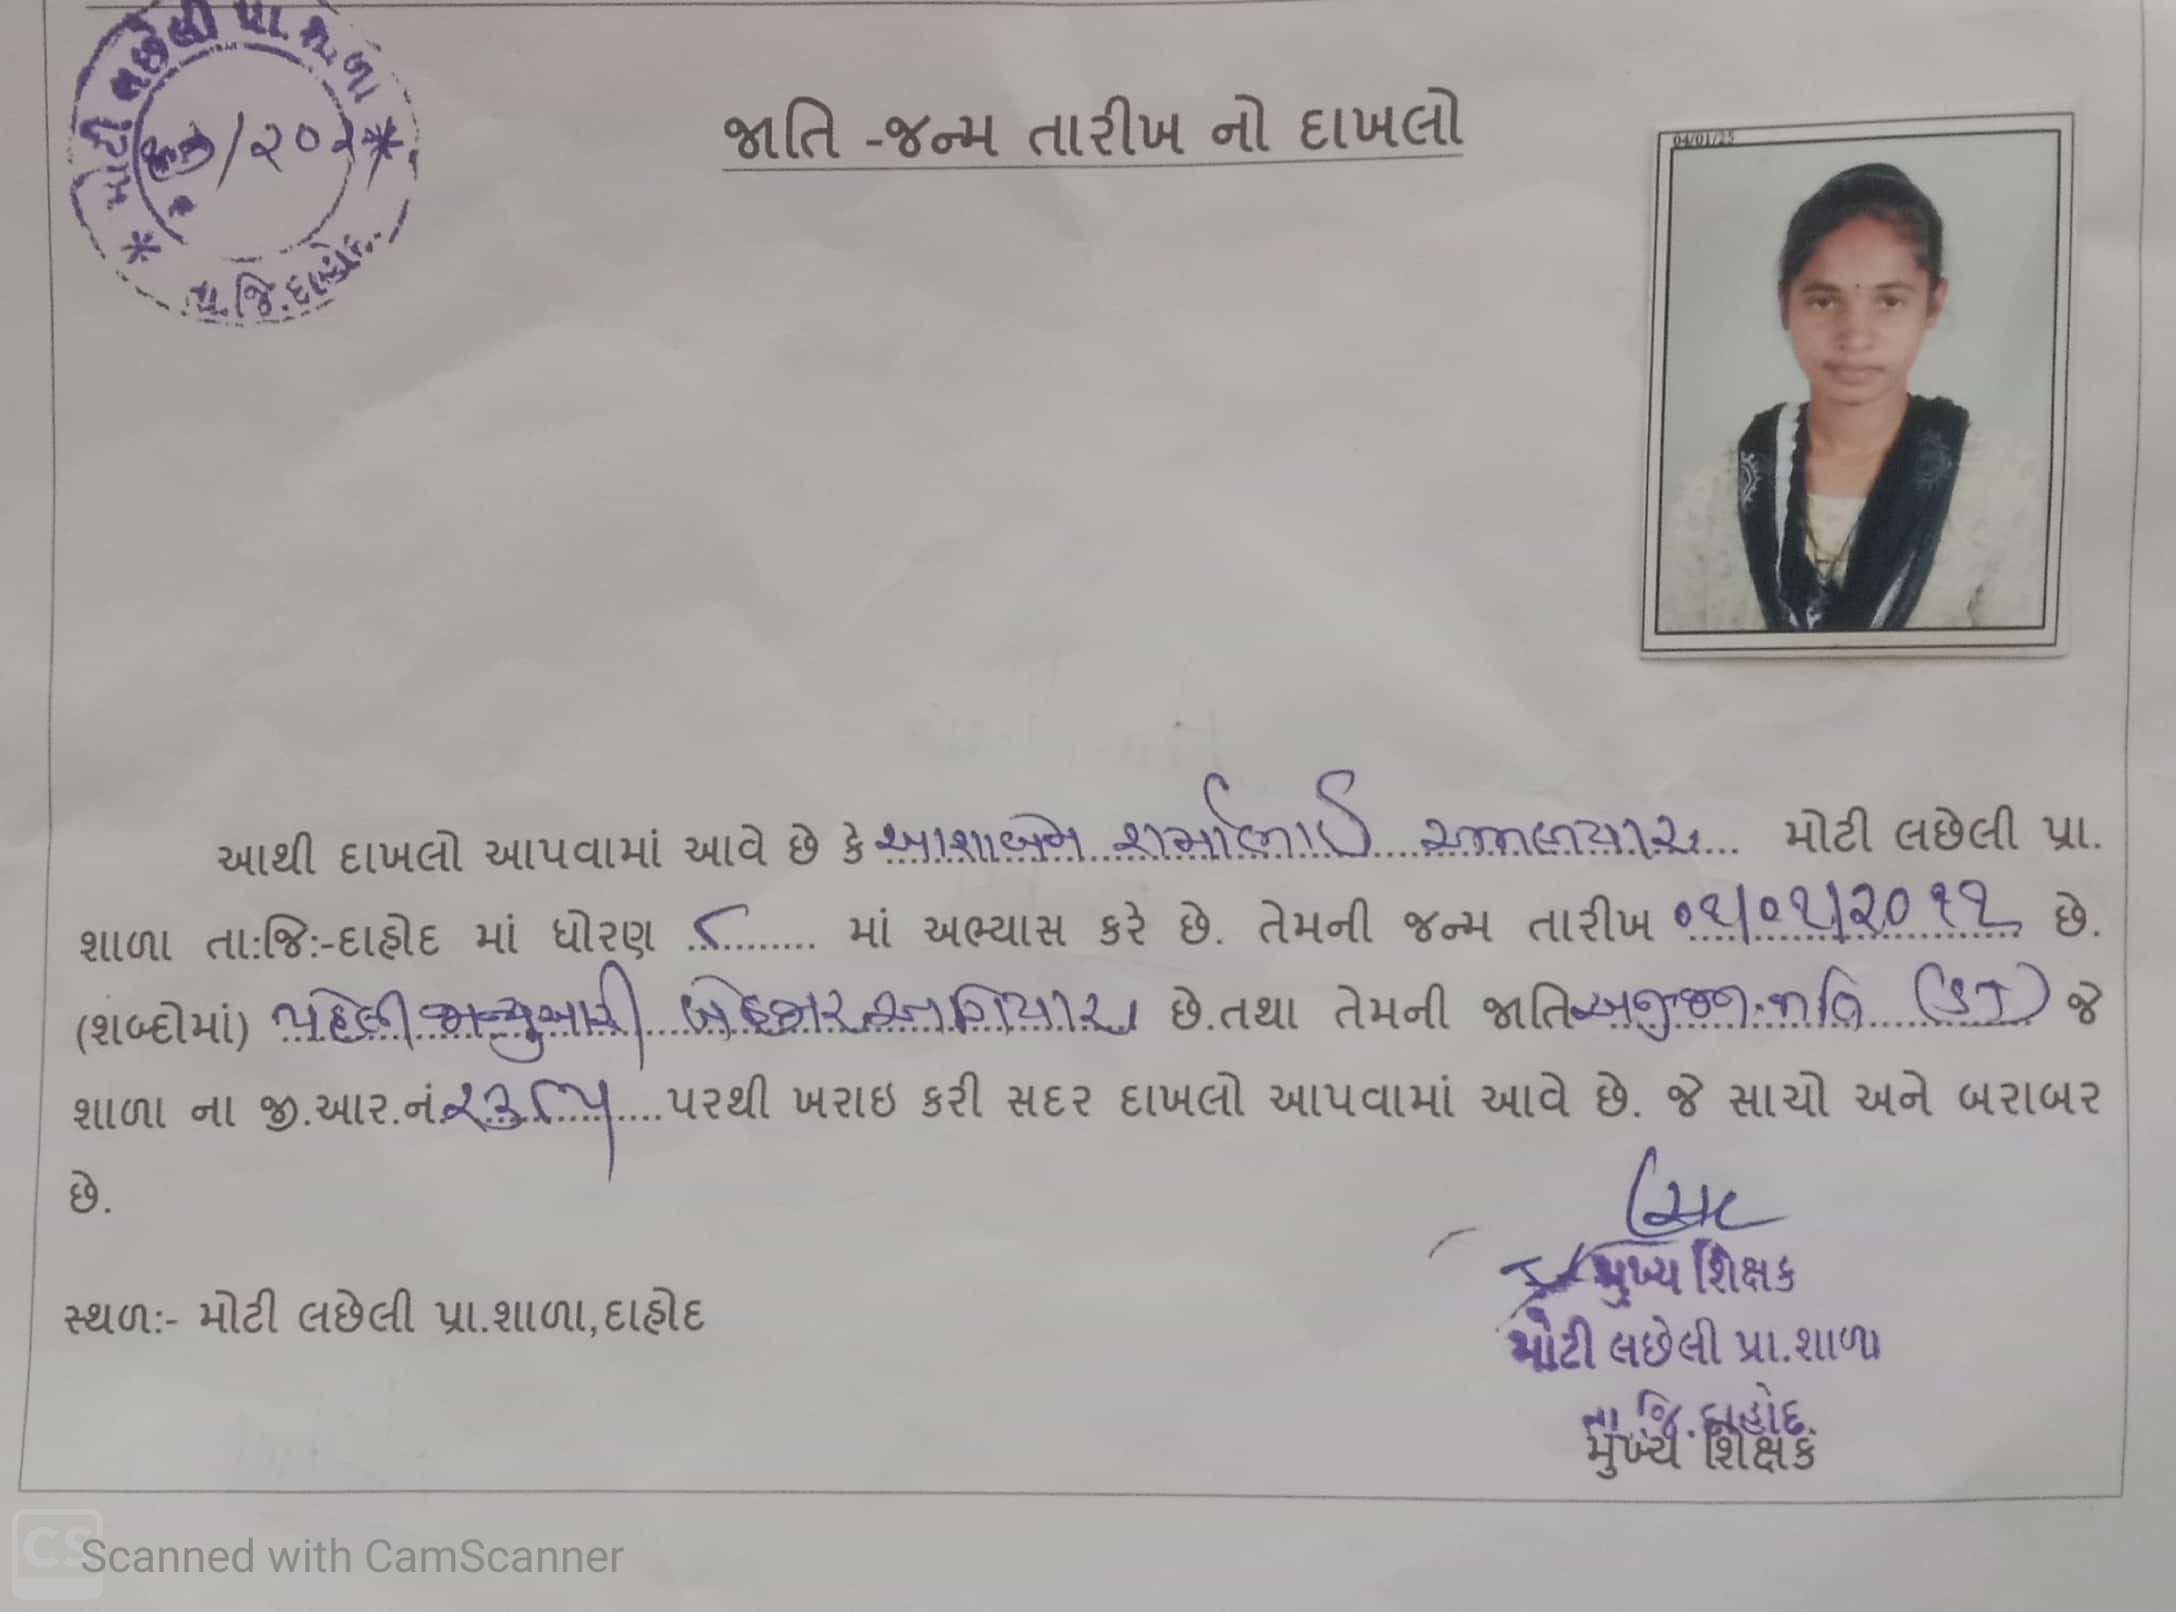 મોટી લછેલી પ્રા.શાળા
તા.જિ.દાહોદ
જાતિ -જન્મ તારીખ નો દાખલો
04/01/25
આથી દાખલો આપવામાં આવે છે કે આશાબેન શર્માભાઈ મોટી લછેલી પ્રા.
શાળા તા:જિ:-દાહોદ માં ધોરણ ૮ માં અભ્યાસ કરે છે. તેમની જન્મ તારીખ ૦૧/૦૧/૨૦૧૧ છે.
(શબ્દોમાં) પહેલી જાન્યુઆરી બે હજાર અગિયાર છે.તથા તેમની જાતિ અનુ.જન.જાતિ (ST) જે
શાળા ના જી.આર.નં. ૨૩૮૫ પરથી ખરાઇ કરી સદર દાખલો આપવામાં આવે છે. જે સાચો અને બરાબર
છે.
મુખ્ય શિક્ષક
સ્થળ:- મોટી લછેલી પ્રા.શાળા,દાહોદ
મોટી લછેલી પ્રા.શાળા
તા.જિ.દાહોદ
મુખ્ય શિક્ષક
CS Scanned with CamScanner